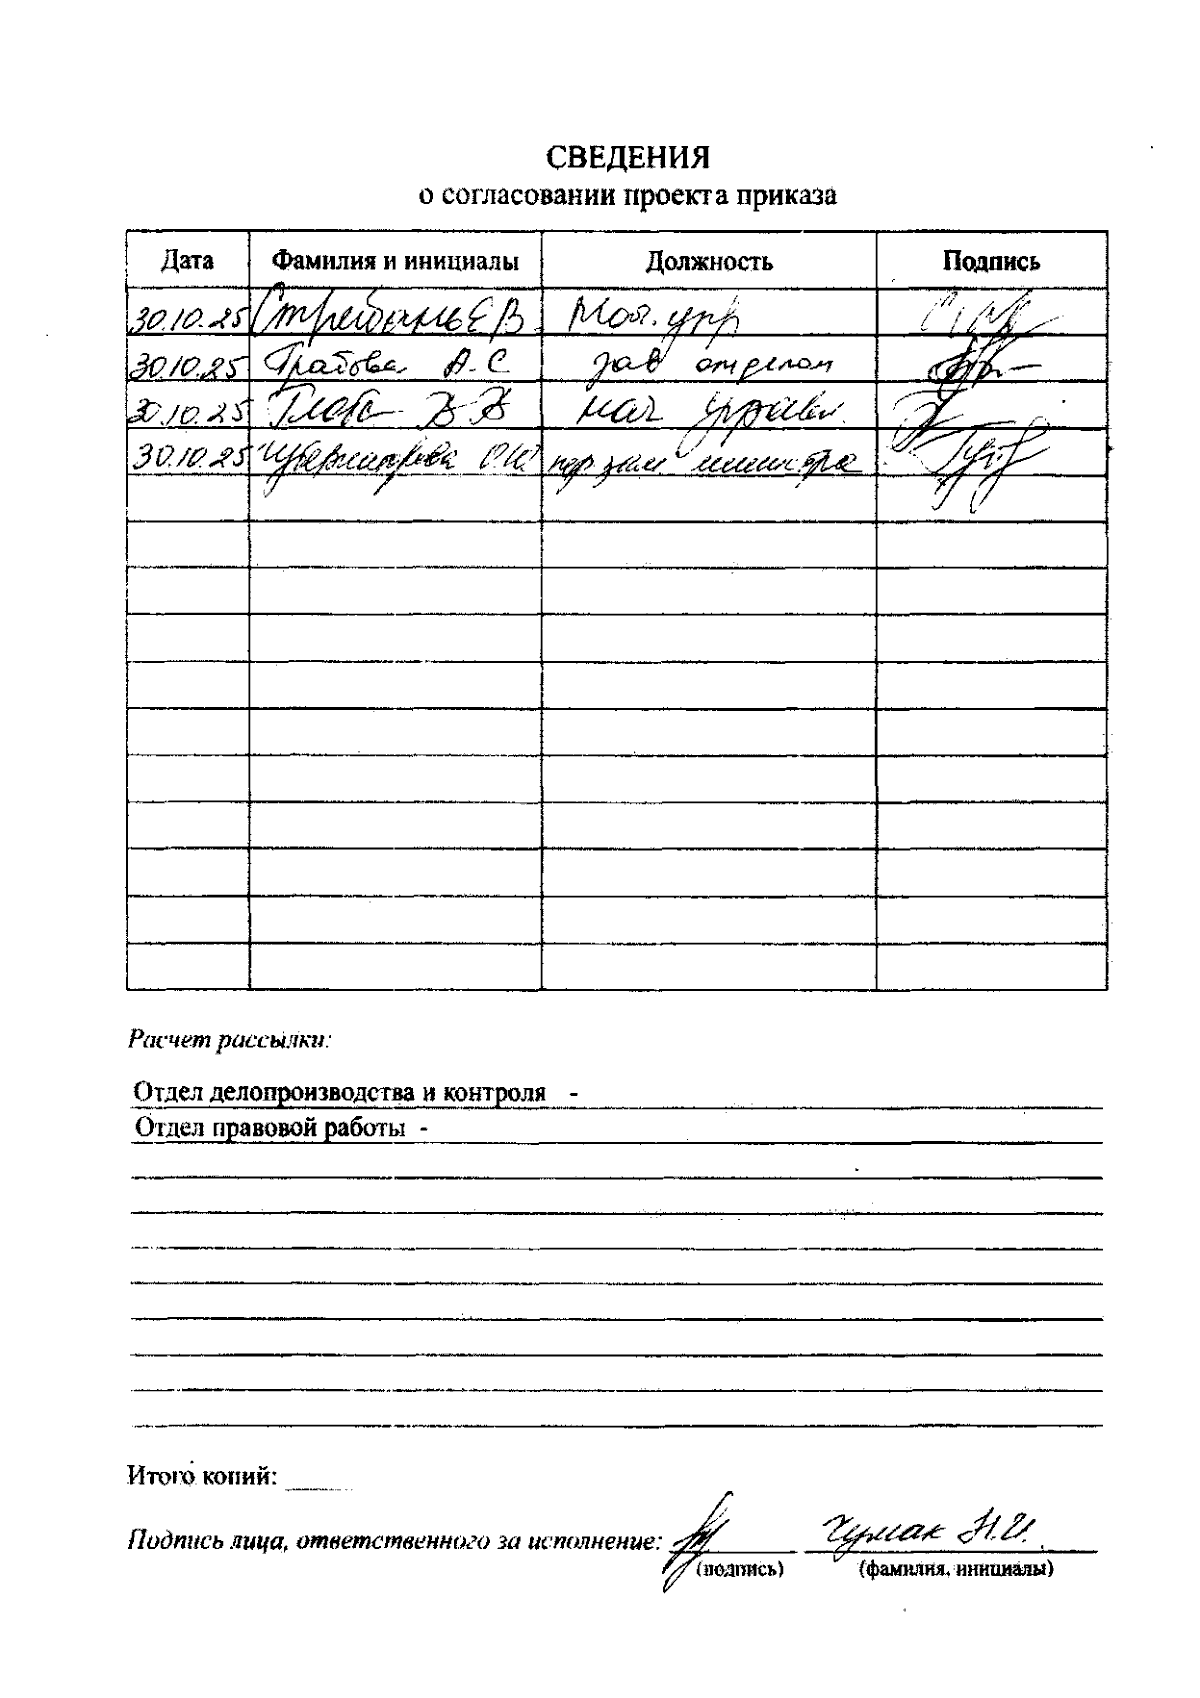 СВЕДЕНИЯ
о согласовании проекта приказа
Дата Фамилия и инициалы Должность Подпись
30.10.25 Е В Нач. упр
30.10.25 А.С зав отделом
30.10.25 нач управл.
30.10.25 О.Ю. пер зам министра
Расчет рассылки:
Отдел делопроизводства и контроля -
Отдел правовой работы -
Итого копий:
Подпись лица, ответственного за исполнение: Чумак Н.И.
(подпись) (фамилия, инициалы)